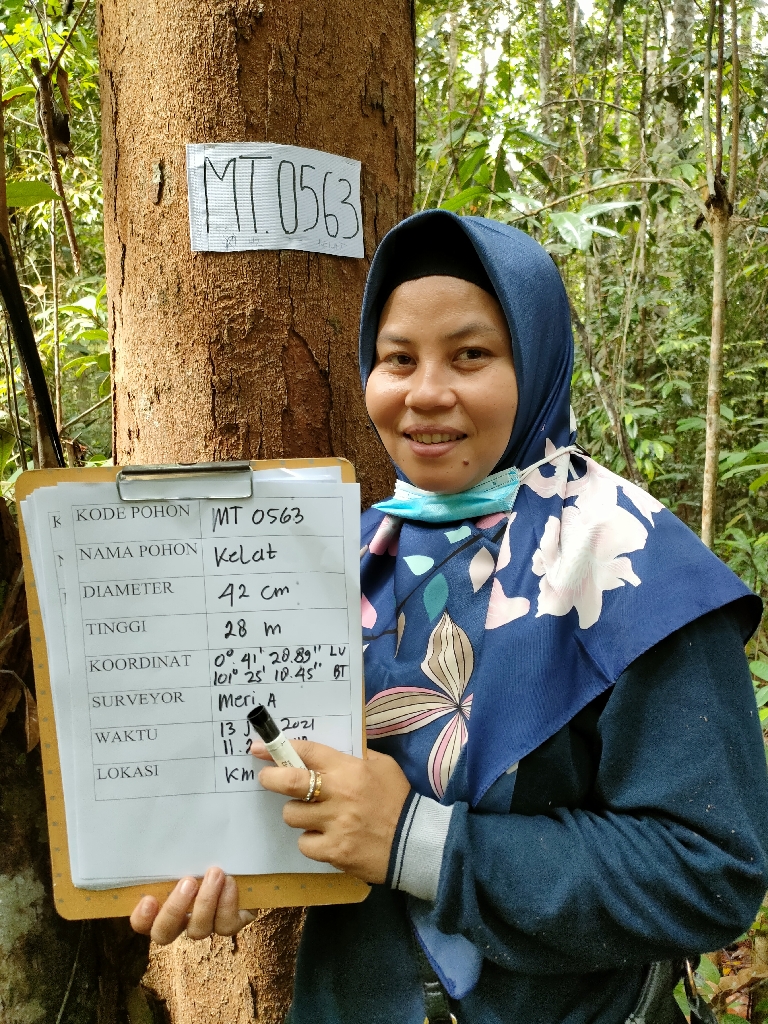 MT.0563
KELAT
KODE POHON MT 0563
NAMA POHON Kelat
DIAMETER 42 cm
TINGGI 28 m
KOORDINAT 0°. 41' 20.89" LU
101° 25' 10.45" BT
SURVEYOR Meri A
WAKTU 13 2021
11.
LOKASI Km
K